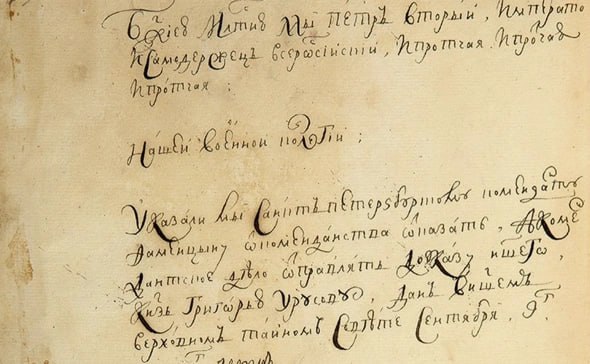 Бжиею Млтию Мы Пётръ вторыи, Императо
и Самодержецъ всероссiискiи, и протчая и протчая
и протчая:
Нашей военнои колегiи:
Указали мы Санктъ петерзбургскому коменданту
 от комендантства отказать, а коме
дантское дѣло отправлять до указу ншего,
Кнзь Григорью Урусову, данъ в ншемъ
верховномъ таиномъ Совѣте Сентября, 9г